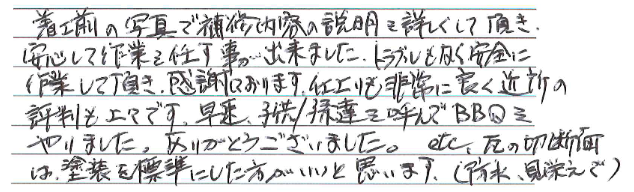 着工前の写真で補修内容の説明を詳しくして頂き、
安心して作業を任す事が出来ました。トラブルもなく安全に
作業して頂き、感謝しております。仕上りも非常に良く近所の
評判も上々です。早速、子供/孫達を呼んでBBQを
やりました。ありがとうございました。 etc、瓦の切断面
は、塗装を標準にした方がいいと思います。(防水、見栄えで)